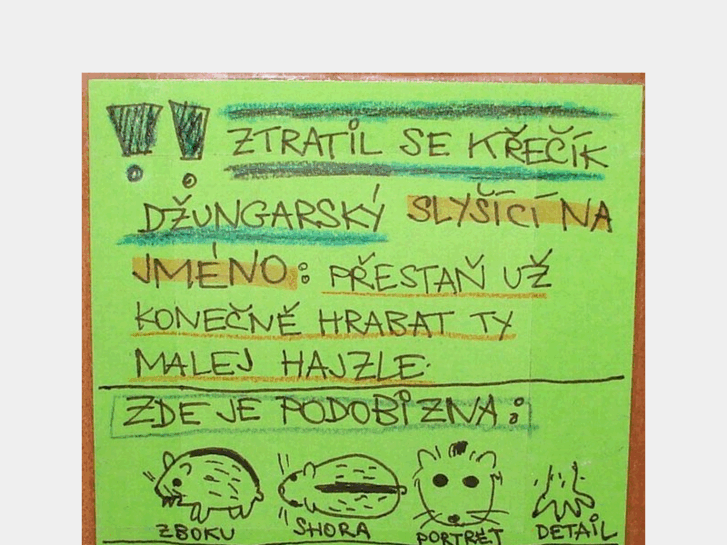 !! ZTRATIL SE KŘEČÍK
DŽUNGARSKÝ SLYŠÍCÍ NA
JMÉNO: PŘESTAŇ UŽ
KONEČNĚ HRABAT TY
MALEJ HAJZLE.
ZDE JE PODOBIZNA:
ZBOKU SHORA PORTRÉT DETAIL